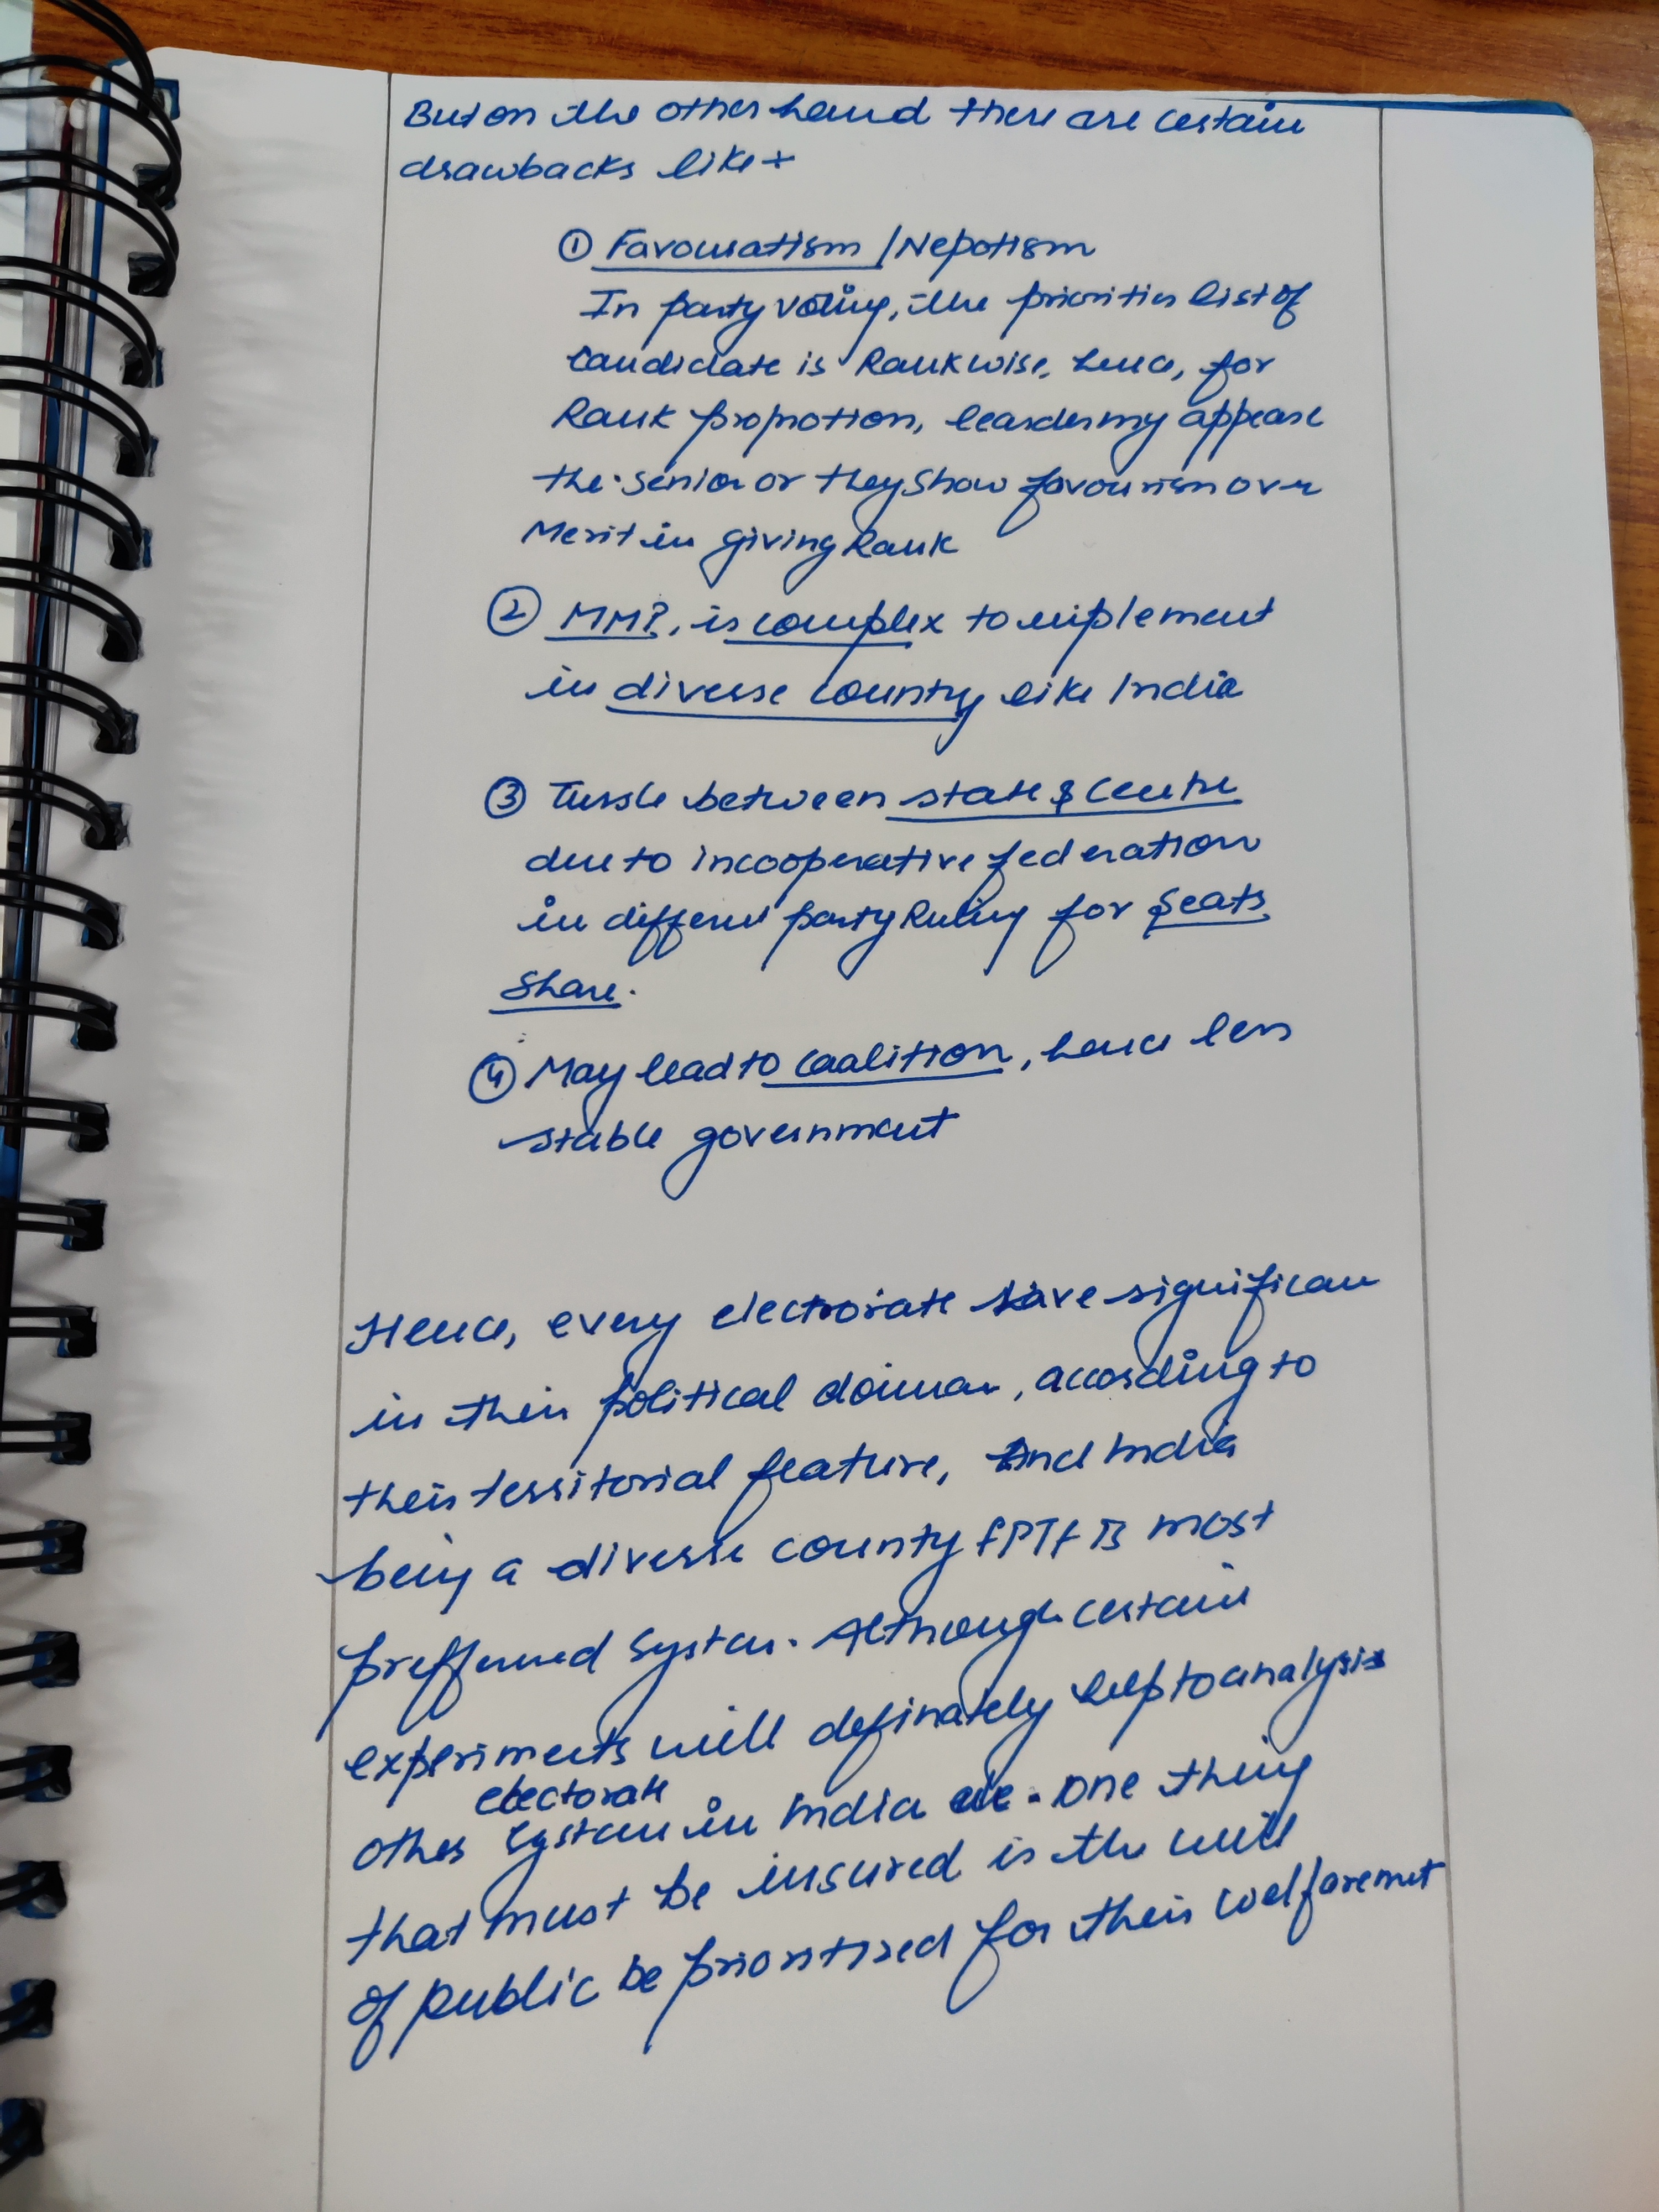 But on the other hand there are certain
drawbacks like→
① Favouratism / Nepotism
In party voting, the priorities list of
candidate is Rankwise, hence, for
Rank promotion, leaders my appease
the senior or they show favourism over
Merit in giving Rank
② MMP, is complex to implement
in diverse county like India
③ Tussle between state & centre
due to incooperative federation
in different party Ruling for seats
share.
④ May lead to coalition, hence less
stable government
Hence, every electorate have significan
in their political domain, according to
their territorial feature, And India
being a diverse county FPTP is most
prefferred system. Although certain
experiments will definately help to analysis
other electorate system in India. One thing
that must be insured is the will
of public be prioritized for their welfare